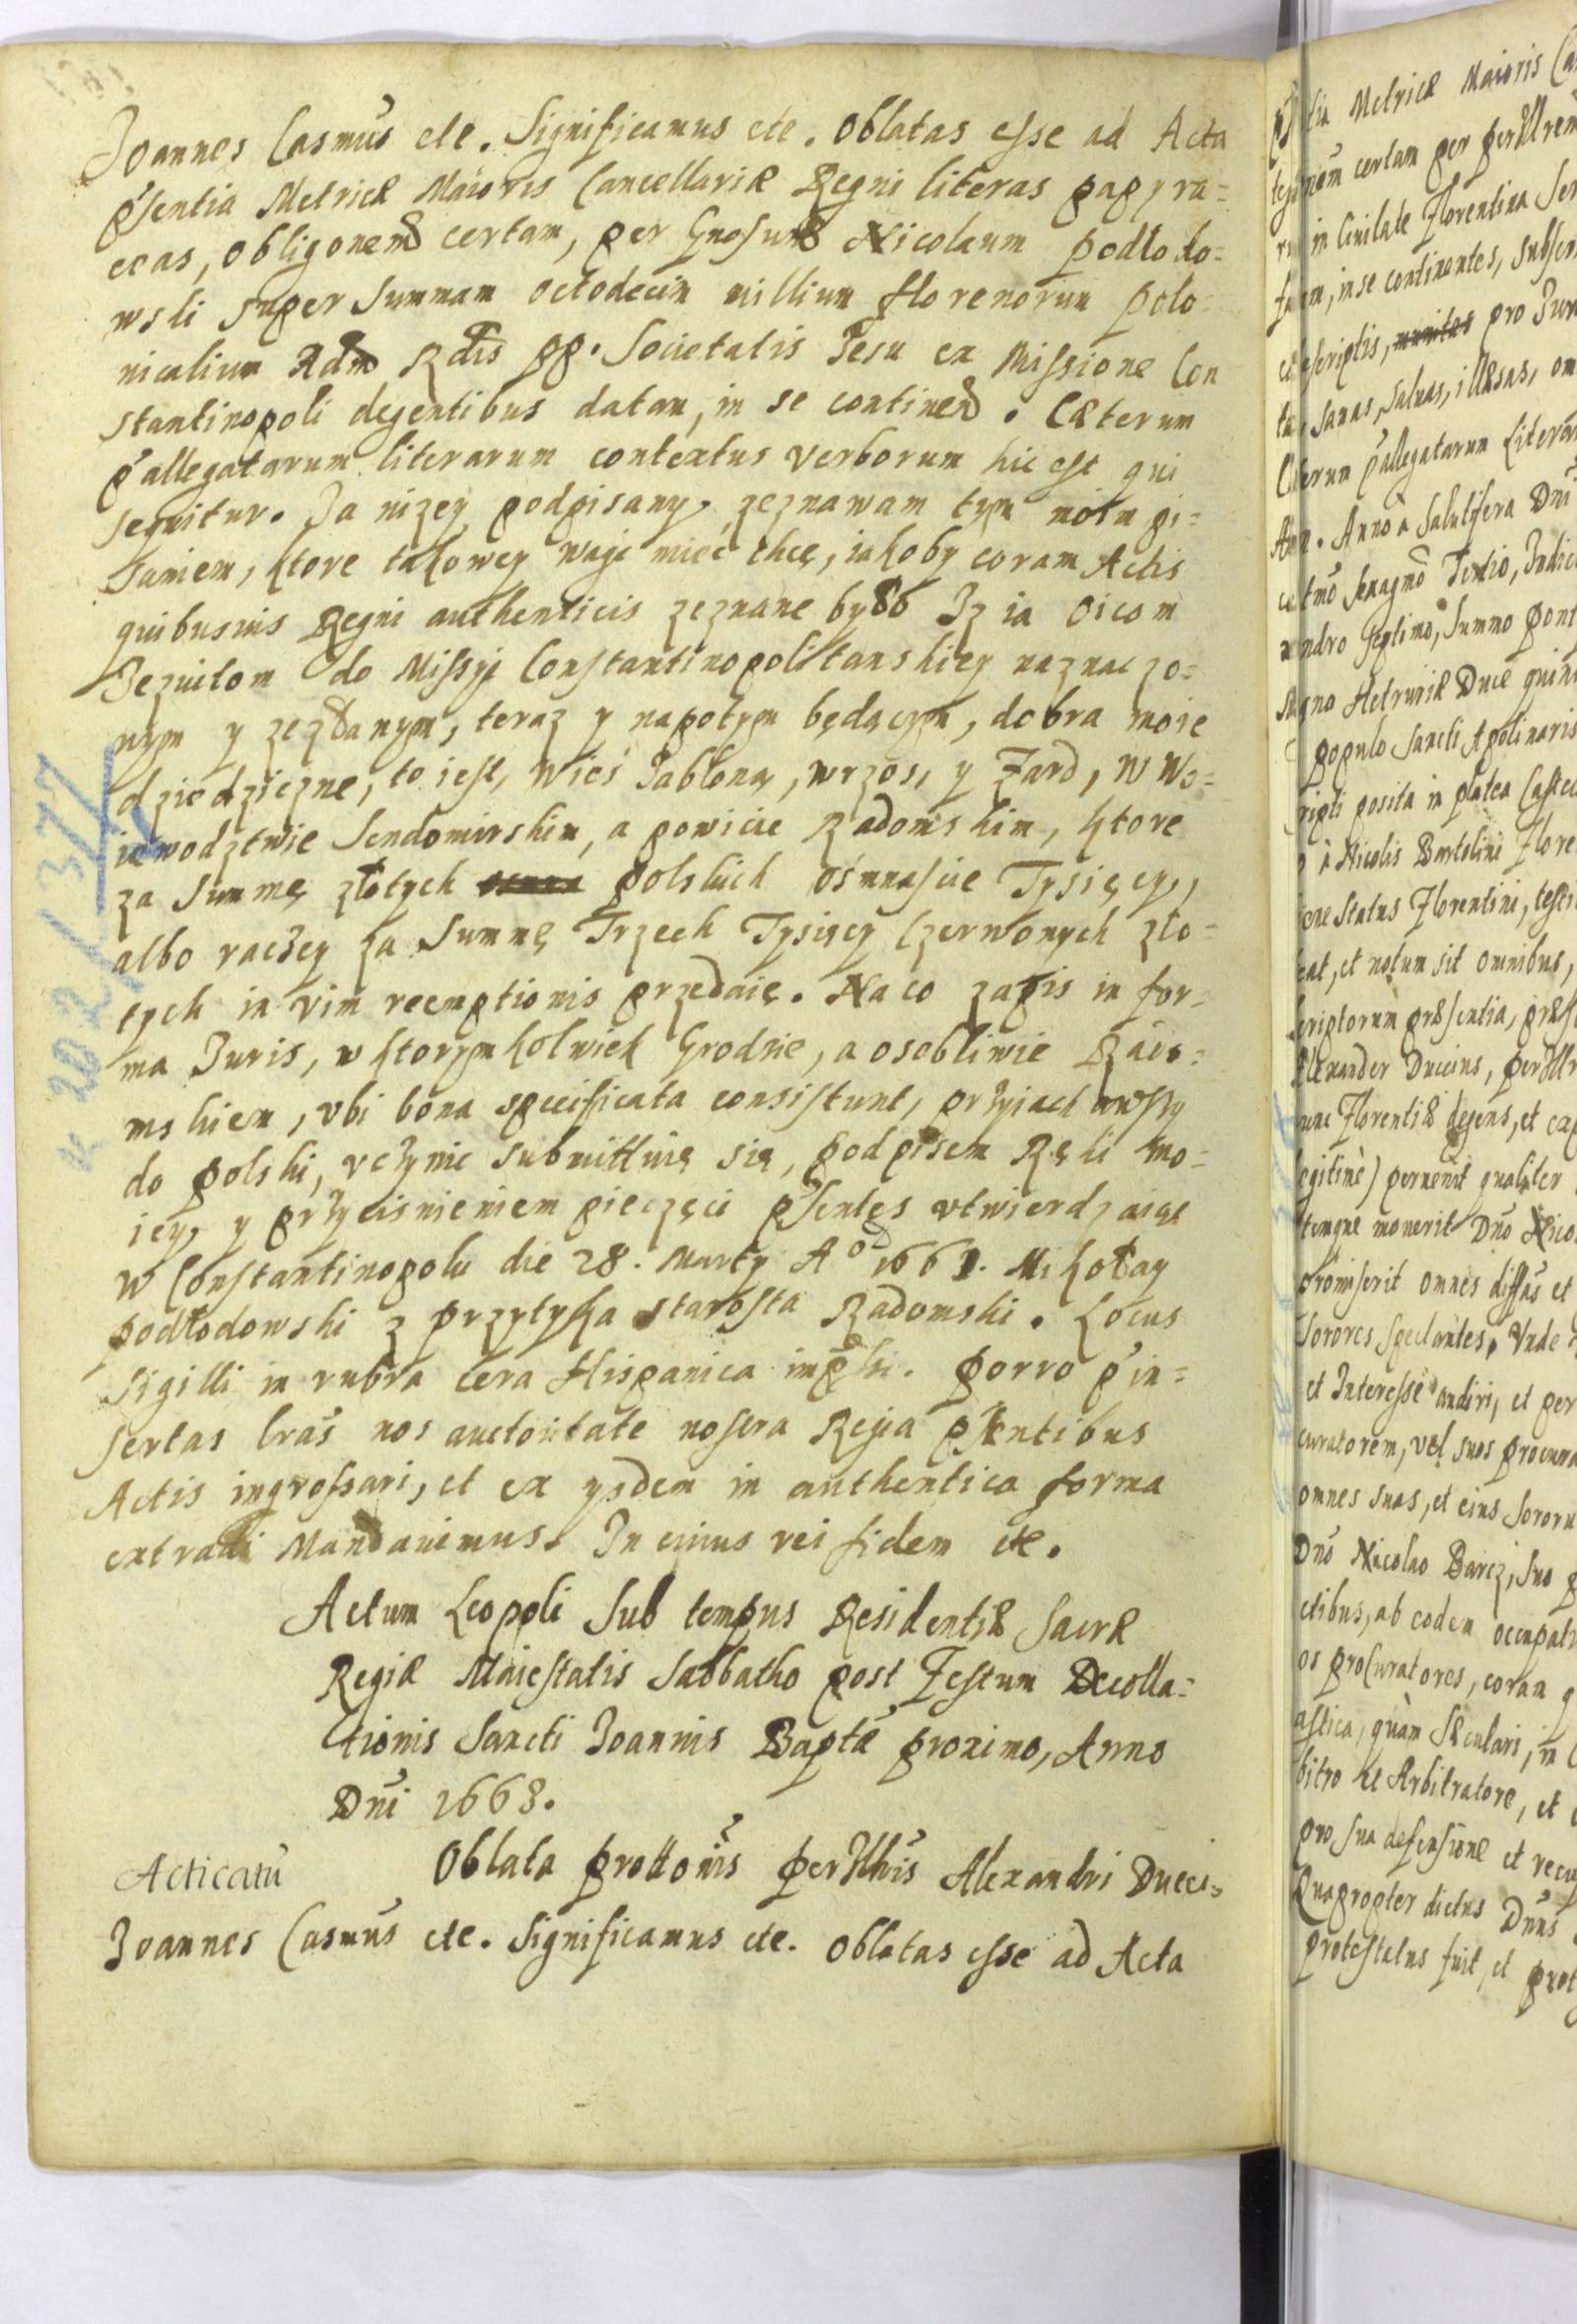 Joannes Casmus etc. Significamus etc. Oblatas esse ad Acta
p'sentia Metricæ Maioris Cancellariæ Regni literas papyra=
ceas, obligonem certam, per Gnosum Nicolaum Podlodo=
wski super Summam octodecim millium florenorum polo=
nicalium Adm Rdis PP. Societatis Jesu ex Missione Con
stantinopoli degentibus datam, in se continen. Cæterum
p'allegatarum literarum contextus verborum hic est qui
sequitur. Ja nizey podpisany, zeznawam tym moim pi=
saniem, ktore takowey wagi mieć chcę, iakoby coram Actis
quibusuis Regni authenticis zeznane było Iz ia Oicom
Jezuitom do Missyi Constantinopolitanskiey naznaczo=
nym y zezłanym, teraz y napotym będącym, dobra moie
dziedziczne, to iest, Wieś Jabloną, wrzos, y Zard, w Wo=
iewodztwie Sendomirskim, a powicie Radomskim, ktore
za Summę złotych polskich ośmnascie Tysięcy,
albo raczey za Summę Trzech Tysięcy Czerwonych zło=
tych in vim reemptionis przedaię. Na co zapis in for=
ma Juris, w ktorymkolwiek Grodzie, a osobliwie Rado=
mskiem, vbi bona specificata consistunt, przyiachawszy
do Polski, vczynic submittuię się, podpisem Ręki mo=
iey, y przycisnieniem pieczęci p'sentes vtwierdzaiąc
W Constantinopolu die 28. Marty Aº 1661. Mikołay
Podłodowski z Przytyka Starosta Radomski. Locus
Sigilli in rubra cera Hispanica imp'ssi. Porro p'in=
sertas lras nos auctoritate nostra Regia p'sentibus
Actis ingrossari, et ex ysdem in authentica forma
extradi Mandauimus. In cuius rei fidem etc.
Actum Leopoli Sub tempus Residentiæ Sacræ
Regiæ Maiestatis Sabbatho post Festum Decolla=
tionis Sancti Joannis Baptæ proximo, Anno
Dni 1663.
Acticatu Oblata prottonis perIllris Alexandri Ducci=
Joannes Casmus etc. Significamus etc. Oblatas esse ad Acta
202/377
tia Metricæ Maioris Ca
nem certam per perIllrem
in Ciuitate Florentina
in se continentes, subscri
pro Jur
sanas, saluas, illæsas, om
Cæterum p'allegatarum Literar
Anno à Salutifera Dni
Tertio, Indic
xandro septimo, Summo Pont
Magno Hetruriæ Duce
populo Sancti Apolinaris
posita in platea
à Nicolis Bartolini Flore
Status Florentini, testi
eat, et notum sit omnibus,
scriptorum præsentia, præs
Alexander Duccius, perIllr
nunc Florentiæ degens, et
legitimè) peruenit qualiter
temque monerit Dno Nico
promiserit omnes
Sorores Spectantes, Vnde
et Interesse audiri, et per
curatorem, vel suos procura
omnes suas, et eius Sororu
Dno Nicolao Barcz, suo p
ctibus, ab eodem occupat
os procuratores, coram
astica, quàm Sæculari, in
bitro et Arbitratore, et
pro sua defensione et recu
Quapropter dictus Dnus
protestatus fuit, et prot